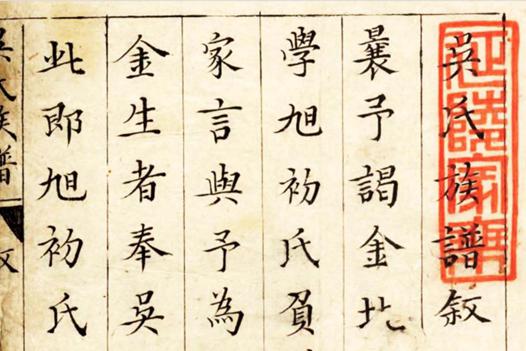 吳氏族譜叙
曩予謁金北
學旭初氏負
家言與予為
金生者奉吳
此即旭初氏
吳氏族譜